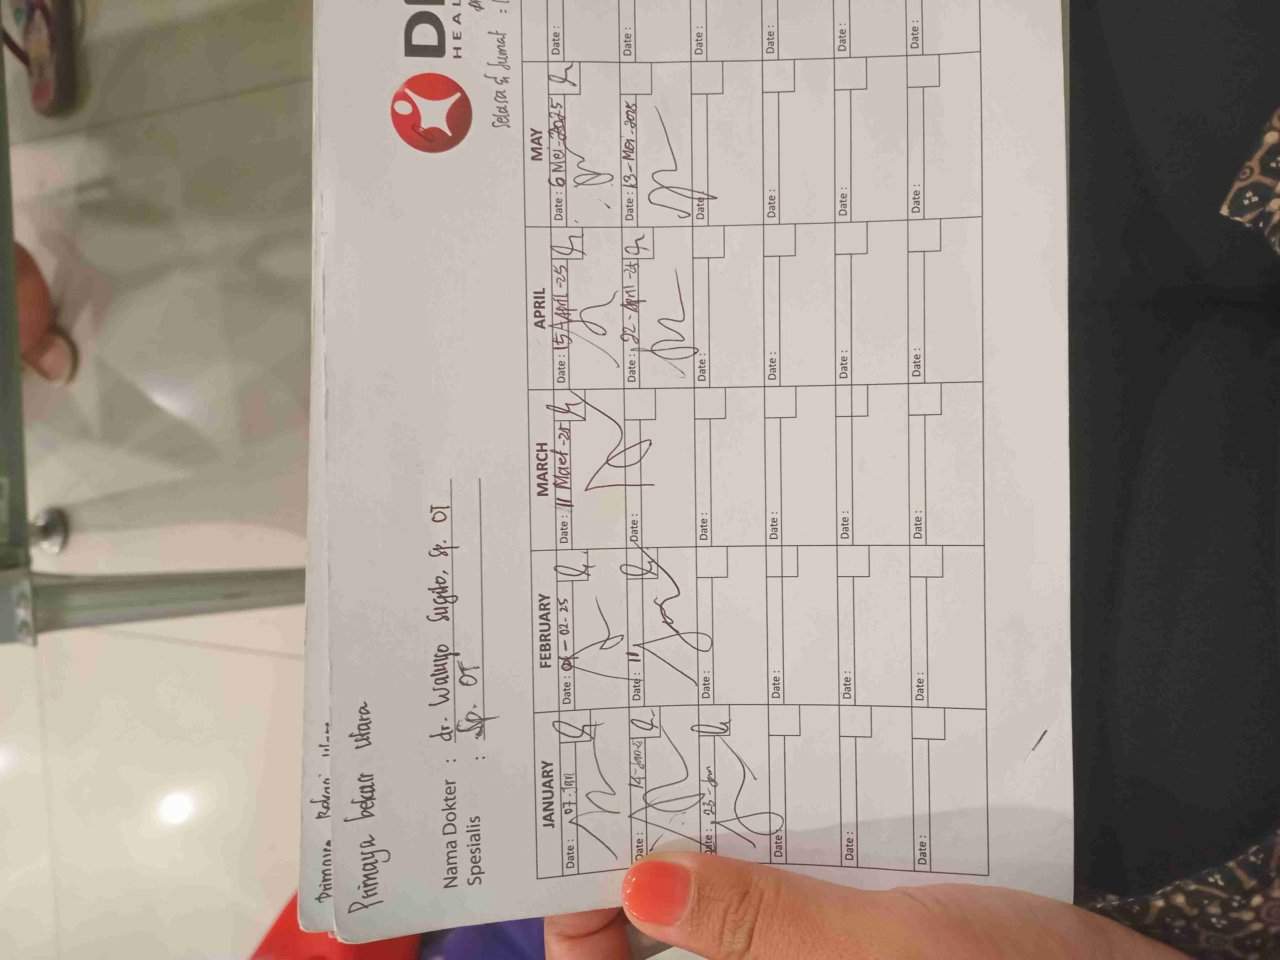 Primaya Bekasi Utara
Selasa & Jumat :
Nama Dokter : dr. Waluyo Sugito, Sp. OT
Spesialis : Sp. OT
JANUARY FEBRUARY MARCH APRIL MAY
Date : 07-Jan Date : -02-25 Date : 11 Maet-25 Date : 15 April-25 Date : 6 Mei-2025 Date :
Date : 14-Jan-25 Date : 11 Date : Date : 22-April-25 Date : 13-Mei-2025 Date :
Date : 23-Jan Date : Date : Date : Date : Date :
Date : Date : Date : Date : Date : Date :
Date : Date : Date : Date : Date : Date :
Date : Date : Date : Date : Date : Date :